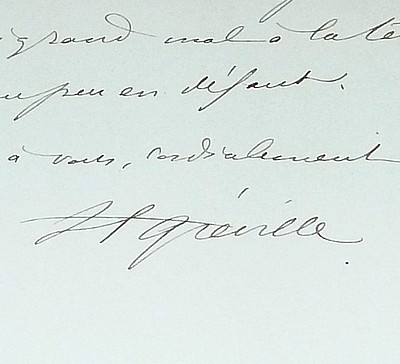 grand mal à la tê
un peu en défaut.
à vous, cordialement
H Gréville